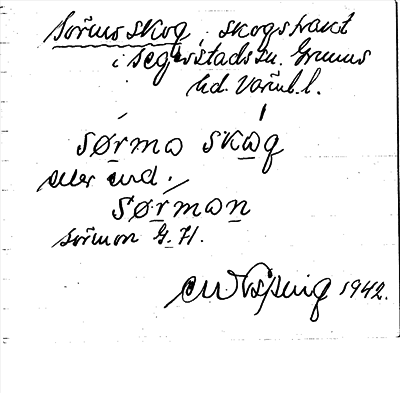 Sörmoskog, skogstrakt
i Segerstads sn. Grums
hd. Värml. l.
sørma skɷg
eller end.
sørmon
sörmon G. H.
1942.